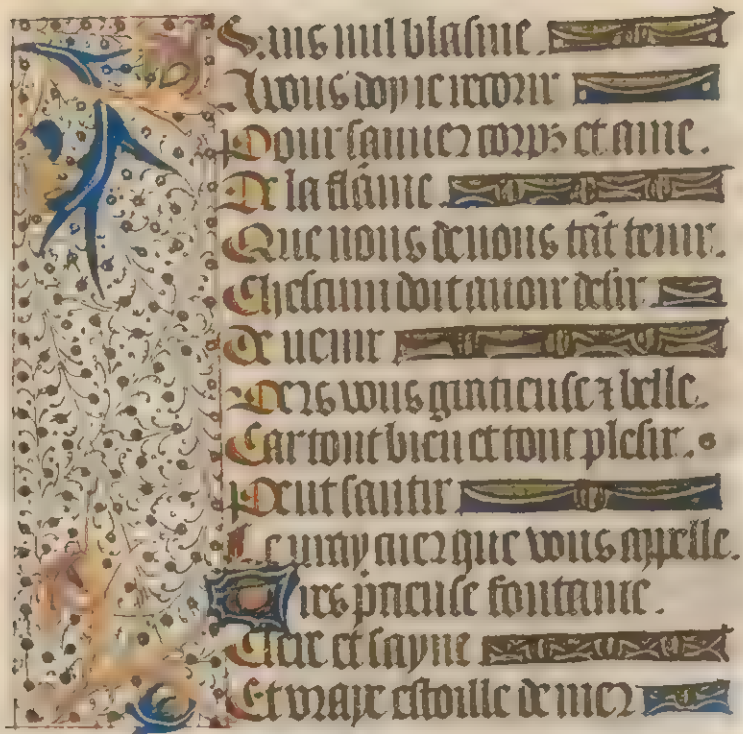 Sans nul blasme.
A vous doy ie recorir
Pour sauuer corps et ame.
De la flāme.
Que nous deuons tāt temir.
Chescun doit auoir desir
De uenir
Vers vous gratieuse ⁊ belle.
Car tout bien et tout plesir.
Peut santir
Le vray cuer que vous appelle.
Tres p̄cieuse fontaine.
Clere et sayne
Et vraye estoille de mer